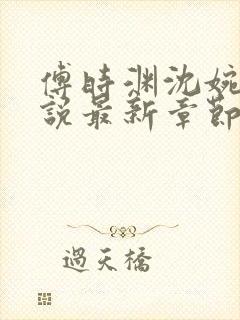 傅時淵沈婉
說最新章節
過天橋